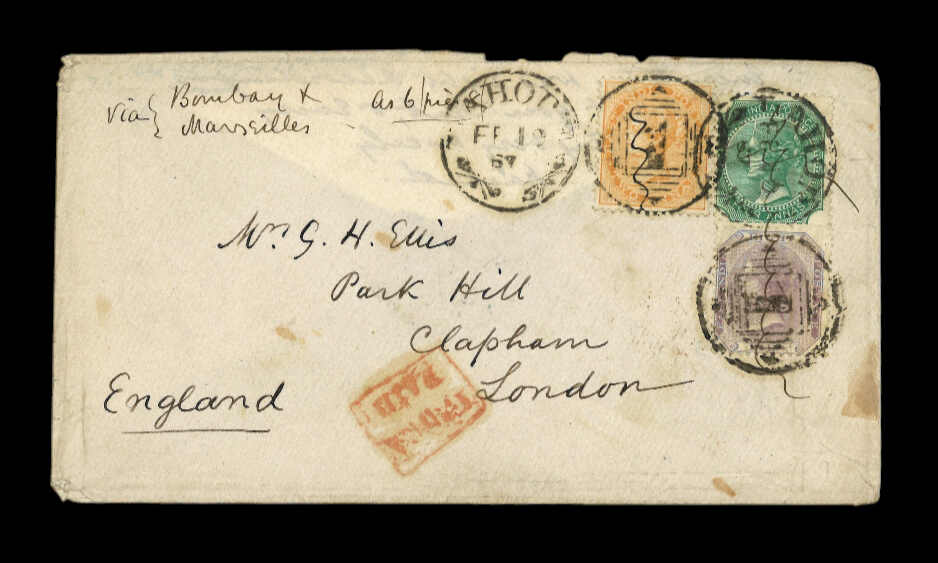 via Bombay & Marseilles
As 6/ pies 8
KHOT
FE 19
67
INDIA POSTAGE
FOUR ANNAS
Mr. G. H. Ellis
Park Hill
Clapham
London
England
INDIA
PAID